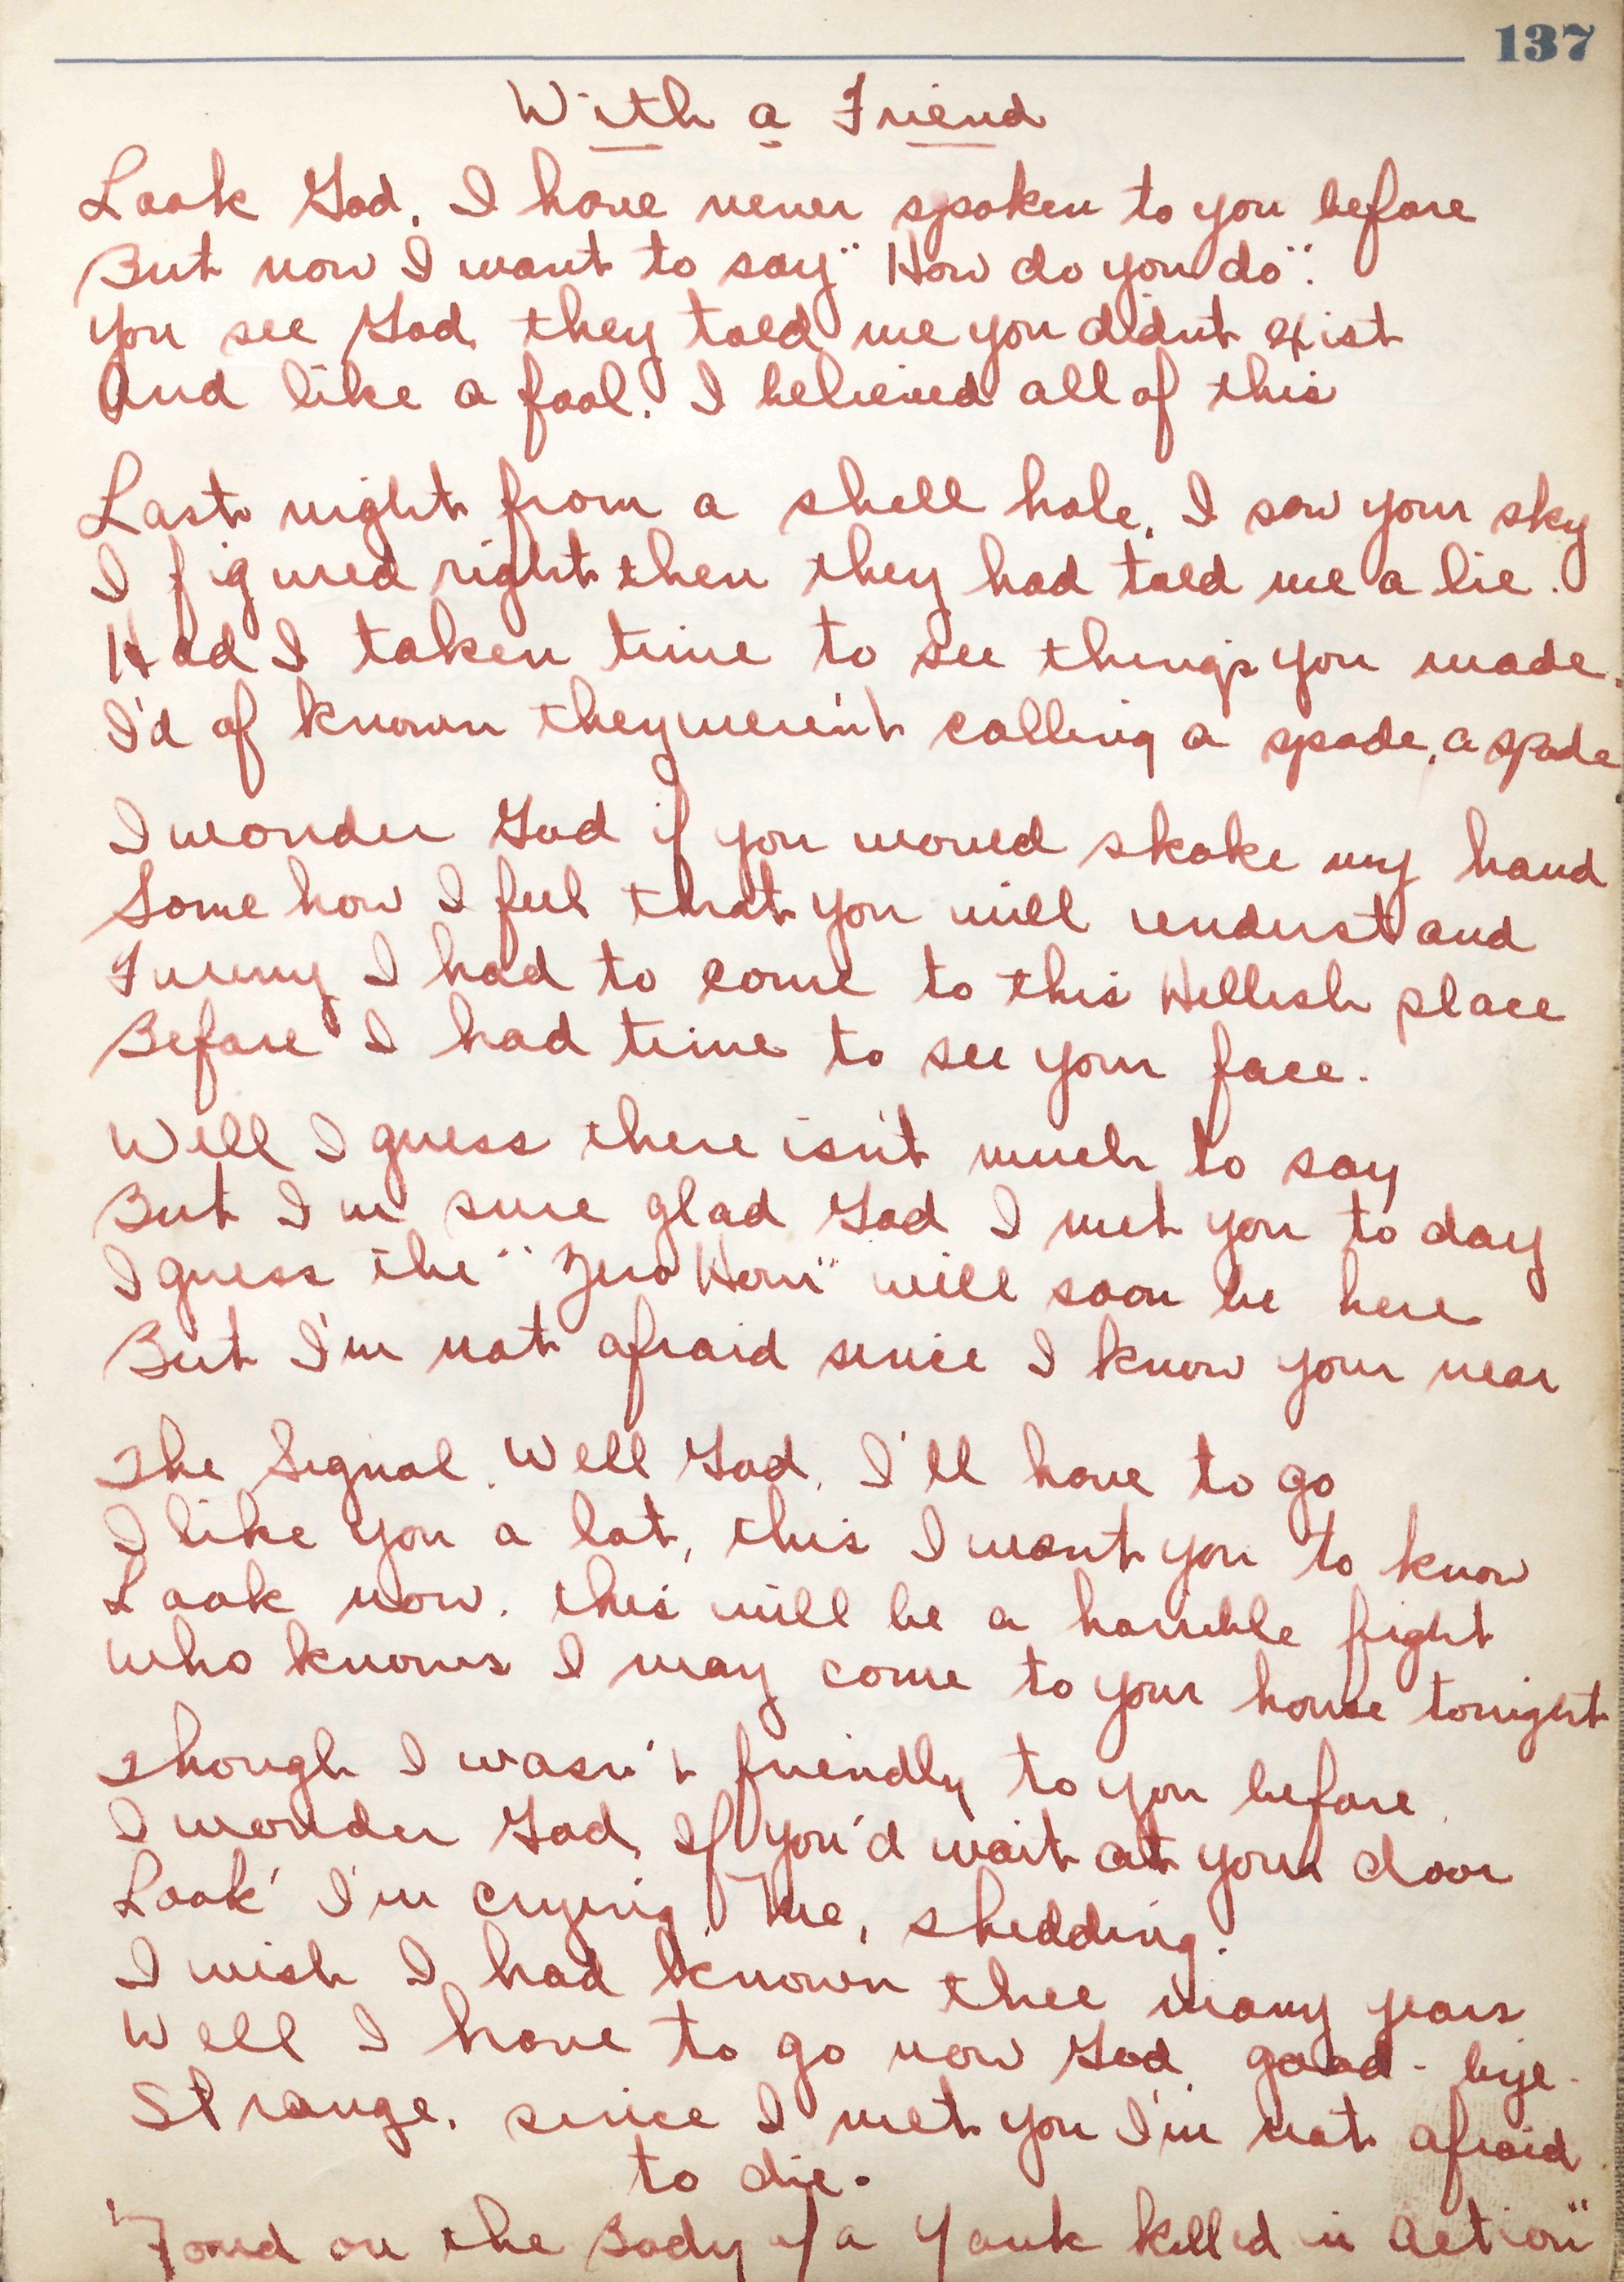 137
With a Friend
Look God, I have never spoken to you before
But now I want to say "How do you do".
You see God, they told me you didnt exist
And like a fool. I believed all of this
Last night from a shell hole, I saw your sky
I figured right then they had told me a lie.
Had I taken time to see things you made.
I'd of known they weren't calling a spade, a spade
I wonder God if you would shake my hand
Some how I feel that you will understand
Funny I had to come to this Hellish place
Before I had time to see your face.
Well I guess there isn't much to say
But I'm sure glad God I met you to day
I guess the "Zero Hour" will soon be here
But I'm not afraid since I know your near
The Signal. Well God, I'll have to go
I like you a lot, this I want you to know
Look now. this will be a horrible fight
Who knows I may come to your house tonight
Though I wasn't friendly to you before.
I wonder God, If you'd wait at your door
Look' I'm crying, Me, shedding.
I wish I had known thee many years
Well I have to go now God, good-bye.
Strange, since I met you I'm not afraid
to die.
"Fond on the Body of a Yank killed in Action"